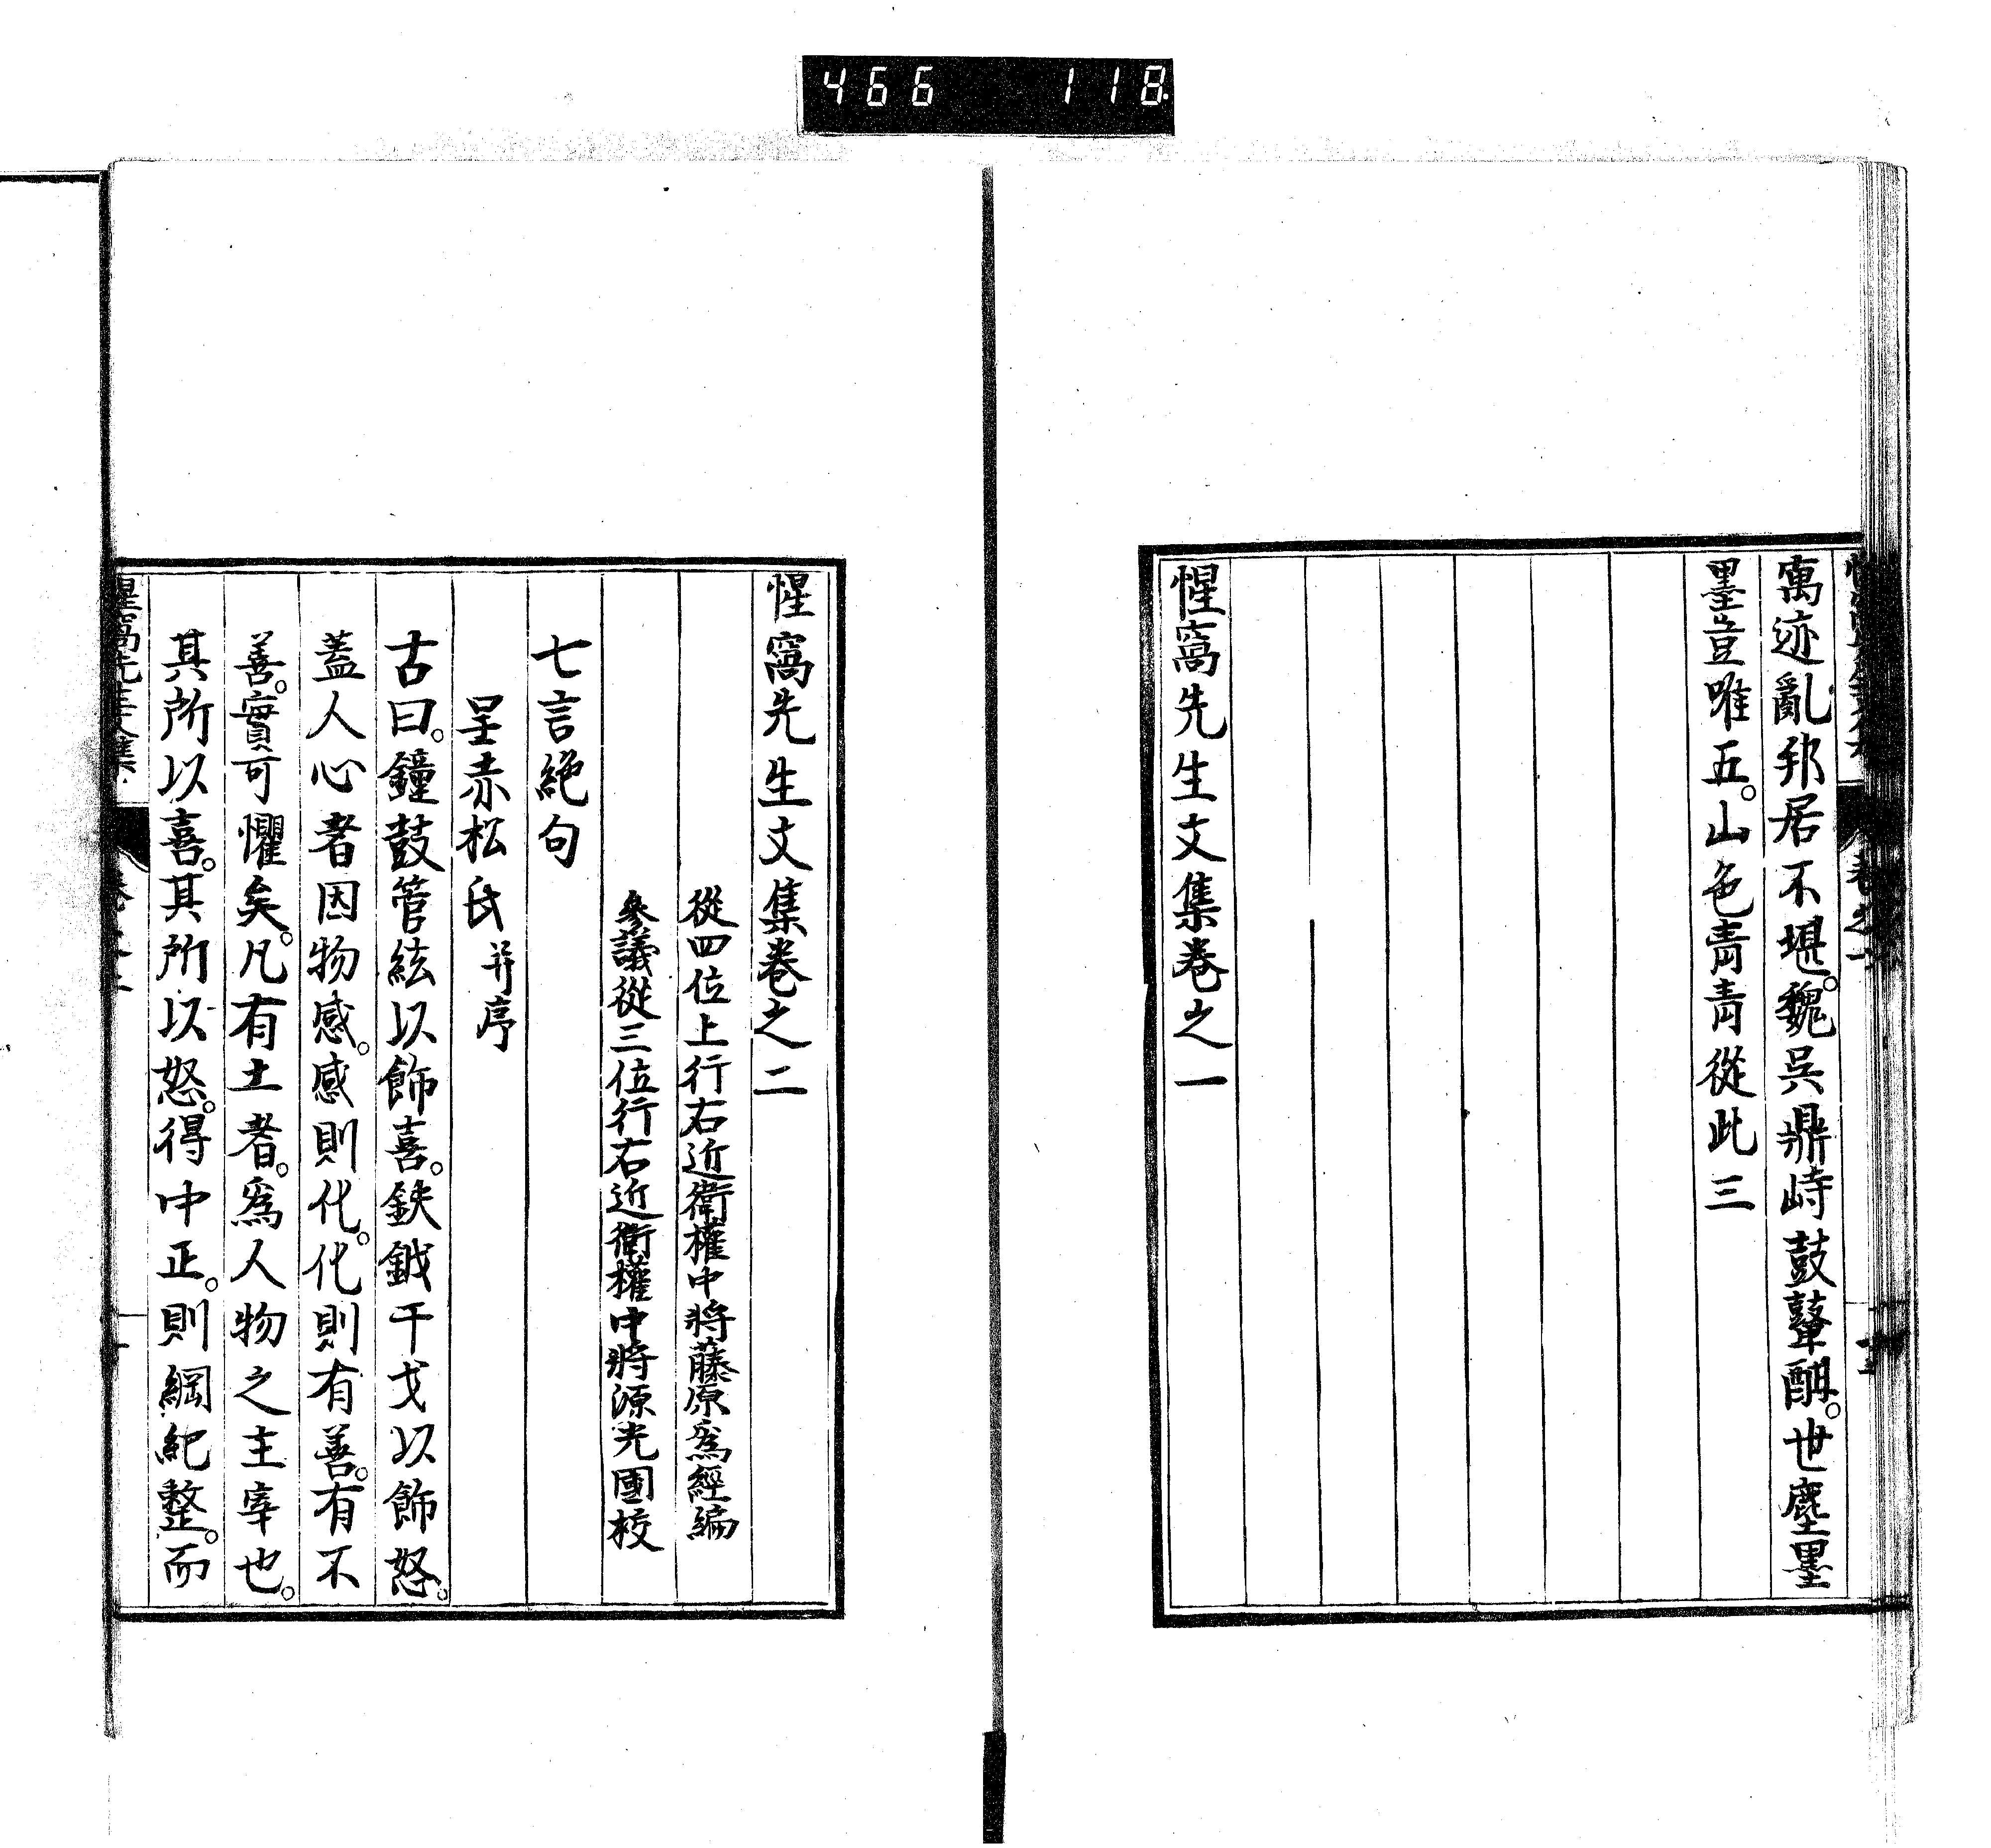 466 118
寓迹亂邦居不堪。魏吳鼎峙鼓鼙酣。世塵墨
墨豈唯五。山色青青從此三
惺窩先生文集卷之一
惺窩先生文集卷之二
從四位上行右近衛權中將藤原爲經編
參議從三位行右近衛權中將源光圀校
七言絕句
呈赤松氏并序
古曰。鐘鼓管絃以飾喜。鈇鉞干戈以飾怒。
蓋人心者因物感。感則化。化則有善。有不
善。實可懼矣。凡有土者。爲人物之主宰也。
其所以喜。其所以怒。得中正。則綱紀整。而